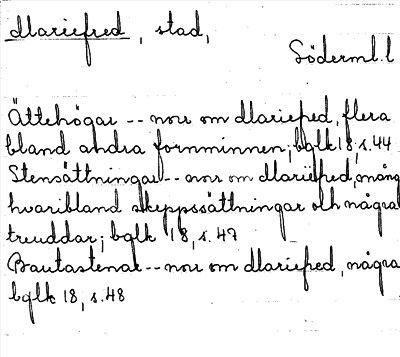 Mariefred, stad,
Söderml. l
Ättehögar -- norr om Mariefred, flera
bland andra fornminnen; bglk 18, s. 44
Stensättningar -- norr om Mariefred, mång
hvaribland skeppssättningar och några
treuddar; bglk 18, s. 47
Bautastenar -- norr om Mariefred, några
bglk 18, s. 48